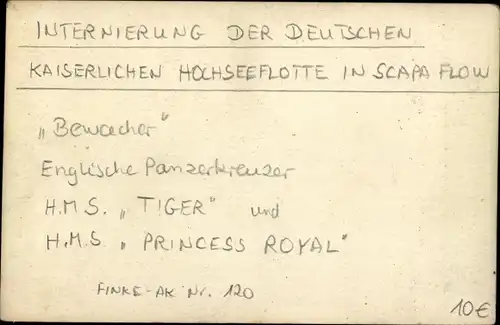 INTERNIERUNG DER DEUTSCHEN
KAISERLICHEN HOCHSEEFLOTTE IN SCAPA FLOW
„Bewacher"
Englische Panzerkreuzer
H.M.S. „TIGER" und
H.M.S. „PRINCESS ROYAL"
FINKE-AK Nr. 120
10€